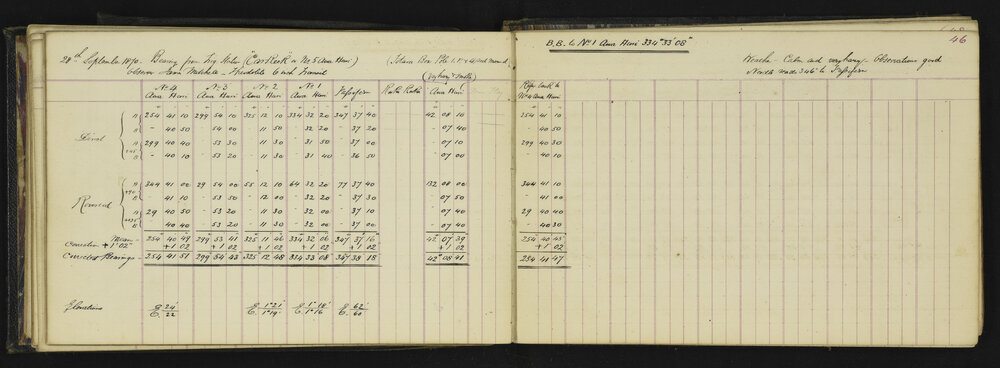 46
B.B. to No 1 Awa Hari 334° 33' 08"
28th September 1890. Bearing from Trig Station
Observer
Theodolite 6 inch Transit
Weather - Calm and very hazy - Observations good
Needle reads 346° to
(very hazy & smoky)
No 4 No 3 No 2 No 1
Direct
A 254 41 10 299 54 10 325 12 10 334 32 20 347 37 40 42 08 10 254 41 10
B - 40 50 - 54 00 - 11 50 - 32 20 - 37 20 - 07 40 - 40 50
A 299 40 40 - 53 30 - 11 30 - 31 50 - 37 00 - 07 10 299 40 30
B - 40 10 - 53 20 - 11 30 - 31 40 - 36 50 - 07 00 - 40 10
Reversed
A 344 41 00 29 54 00 55 12 10 64 32 20 77 37 40 132 08 00 344 41 10
B - 41 10 - 53 50 - 12 00 - 32 20 - 37 30 - 07 50 - 41 00
A 29 40 50 - 53 20 - 11 30 - 32 00 - 37 10 - 07 40 29 40 40
B - 40 40 - 53 20 - 11 30 - 32 00 - 37 00 - 07 40 - 40 40
Mean - 254 40 49 299 53 41 325 11 46 334 32 06 347 37 16 42 07 39 254 40 45
Correction + 1' 02" + 1 02 + 1 02 + 1 02 + 1 02 + 1 02 + 1 02 + 1 02
Corrected Bearings - 254 41 51 299 54 43 325 12 48 334 33 08 347 38 18 42° 08 41 254 41 47
Elevations E 24' E 1° 21' E 1° 18' E 62'
22 1° 19' 1° 16 60